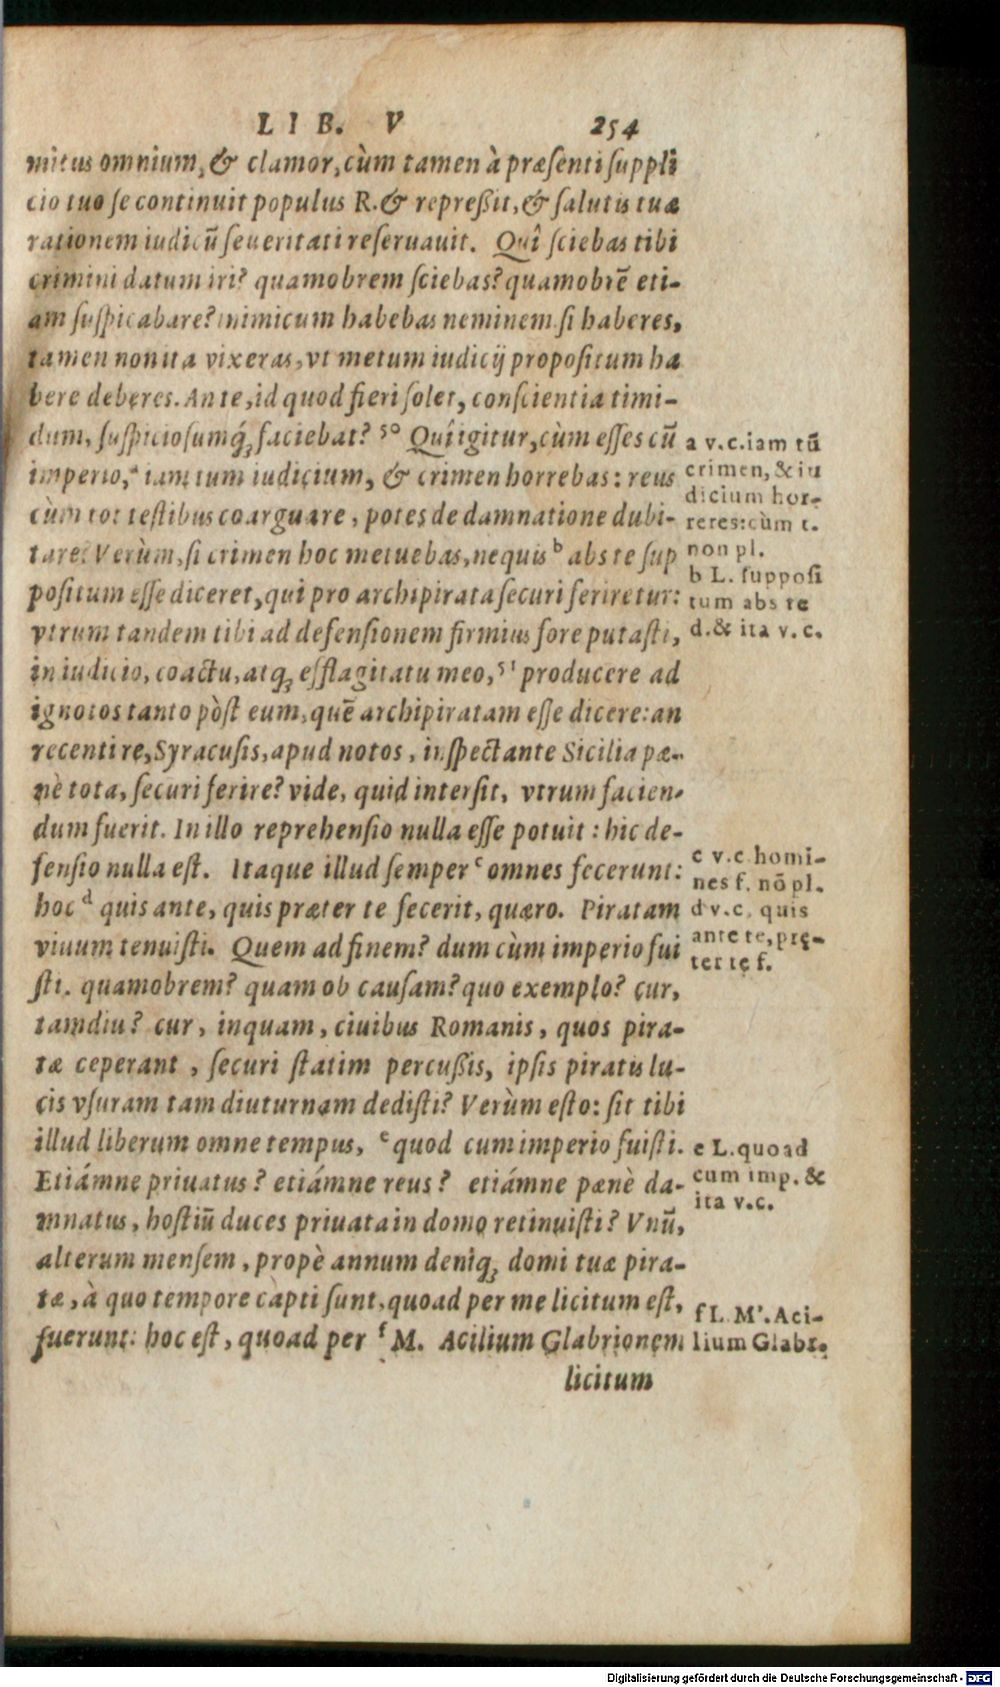 LIB. V 254
mitus omnium, & clamor, cùm tamen à præsenti suppli
cio tuo se continuit populus R. & repreßit, & salutis tuæ
rationem iudicū seueritati reseruauit. Quî sciebas tibi
crimini datum iri? quamobrem sciebas? quamobrē eti-
am suspicabare? inimicum habebas neminem. si haberes,
tamen non ita vixeras, vt metum iudicij propositum ha
bere deberes. An te, id quod fieri solet, conscientia timi-
dum, suspiciosumq́ꝫ faciebat? ⁵⁰ Quî igitur, cùm esses cū
imperio, ᵃ iam tum iudicium, & crimen horrebas: reus
cùm tot testibus coarguare, potes de damnatione dubi-
tare? Verùm, si crimen hoc metuebas, nequis ᵇ abs te sup
positum esse diceret, qui pro archipirata securi feriretur:
vtrum tandem tibi ad defensionem firmius fore putasti,
in iudicio, coactu, atqꝫ efflagitatu meo, ⁵¹ producere ad
ignotos tanto pòst eum, quē archipiratam esse dicere: an
recenti re, Syracusis, apud notos, inspectante Sicilia pæ-
nè tota, securi ferire? vide, quid intersit, vtrum facien-
dum fuerit. In illo reprehensio nulla esse potuit: hic de-
fensio nulla est. Itaque illud semper ᶜ omnes fecerunt:
hoc ᵈ quis ante, quis præter te fecerit, quæro. Piratam
viuum tenuisti. Quem ad finem? dum cùm imperio fui
sti. quamobrem? quam ob causam? quo exemplo? cur,
tamdiu? cur, inquam, ciuibus Romanis, quos pira-
tæ ceperant, securi statim percußis, ipsis piratis lu-
cis vsuram tam diuturnam dedisti? Verùm esto: sit tibi
illud liberum omne tempus, ᵉ quod cum imperio fuisti.
Etiámne priuatus? etiámne reus? etiámne pænè da-
mnatus, hostiū duces priuata in domo retinuisti? Vnū,
alterum mensem, propè annum deniqꝫ domi tuæ pira-
tæ, à quo tempore capti sunt, quoad per me licitum est,
fuerunt: hoc est, quoad per ᶠ M. Acilium Glabrionem
licitum
a v.c. iam tū
crimen, & iu
dicium hor-
reres: cùm t.
non pl.
b L. supposi
tum abs te
d. & ita v.c.
c v.c homi-
nes f. nō pl.
d v.c. quis
ante te, prę-
ter te f.
e L. quoad
cum imp. &
ita v.c.
f L M'. Aci-
lium Glabr.
Digitalisierung gefördert durch die Deutsche Forschungsgemeinschaft - DFG